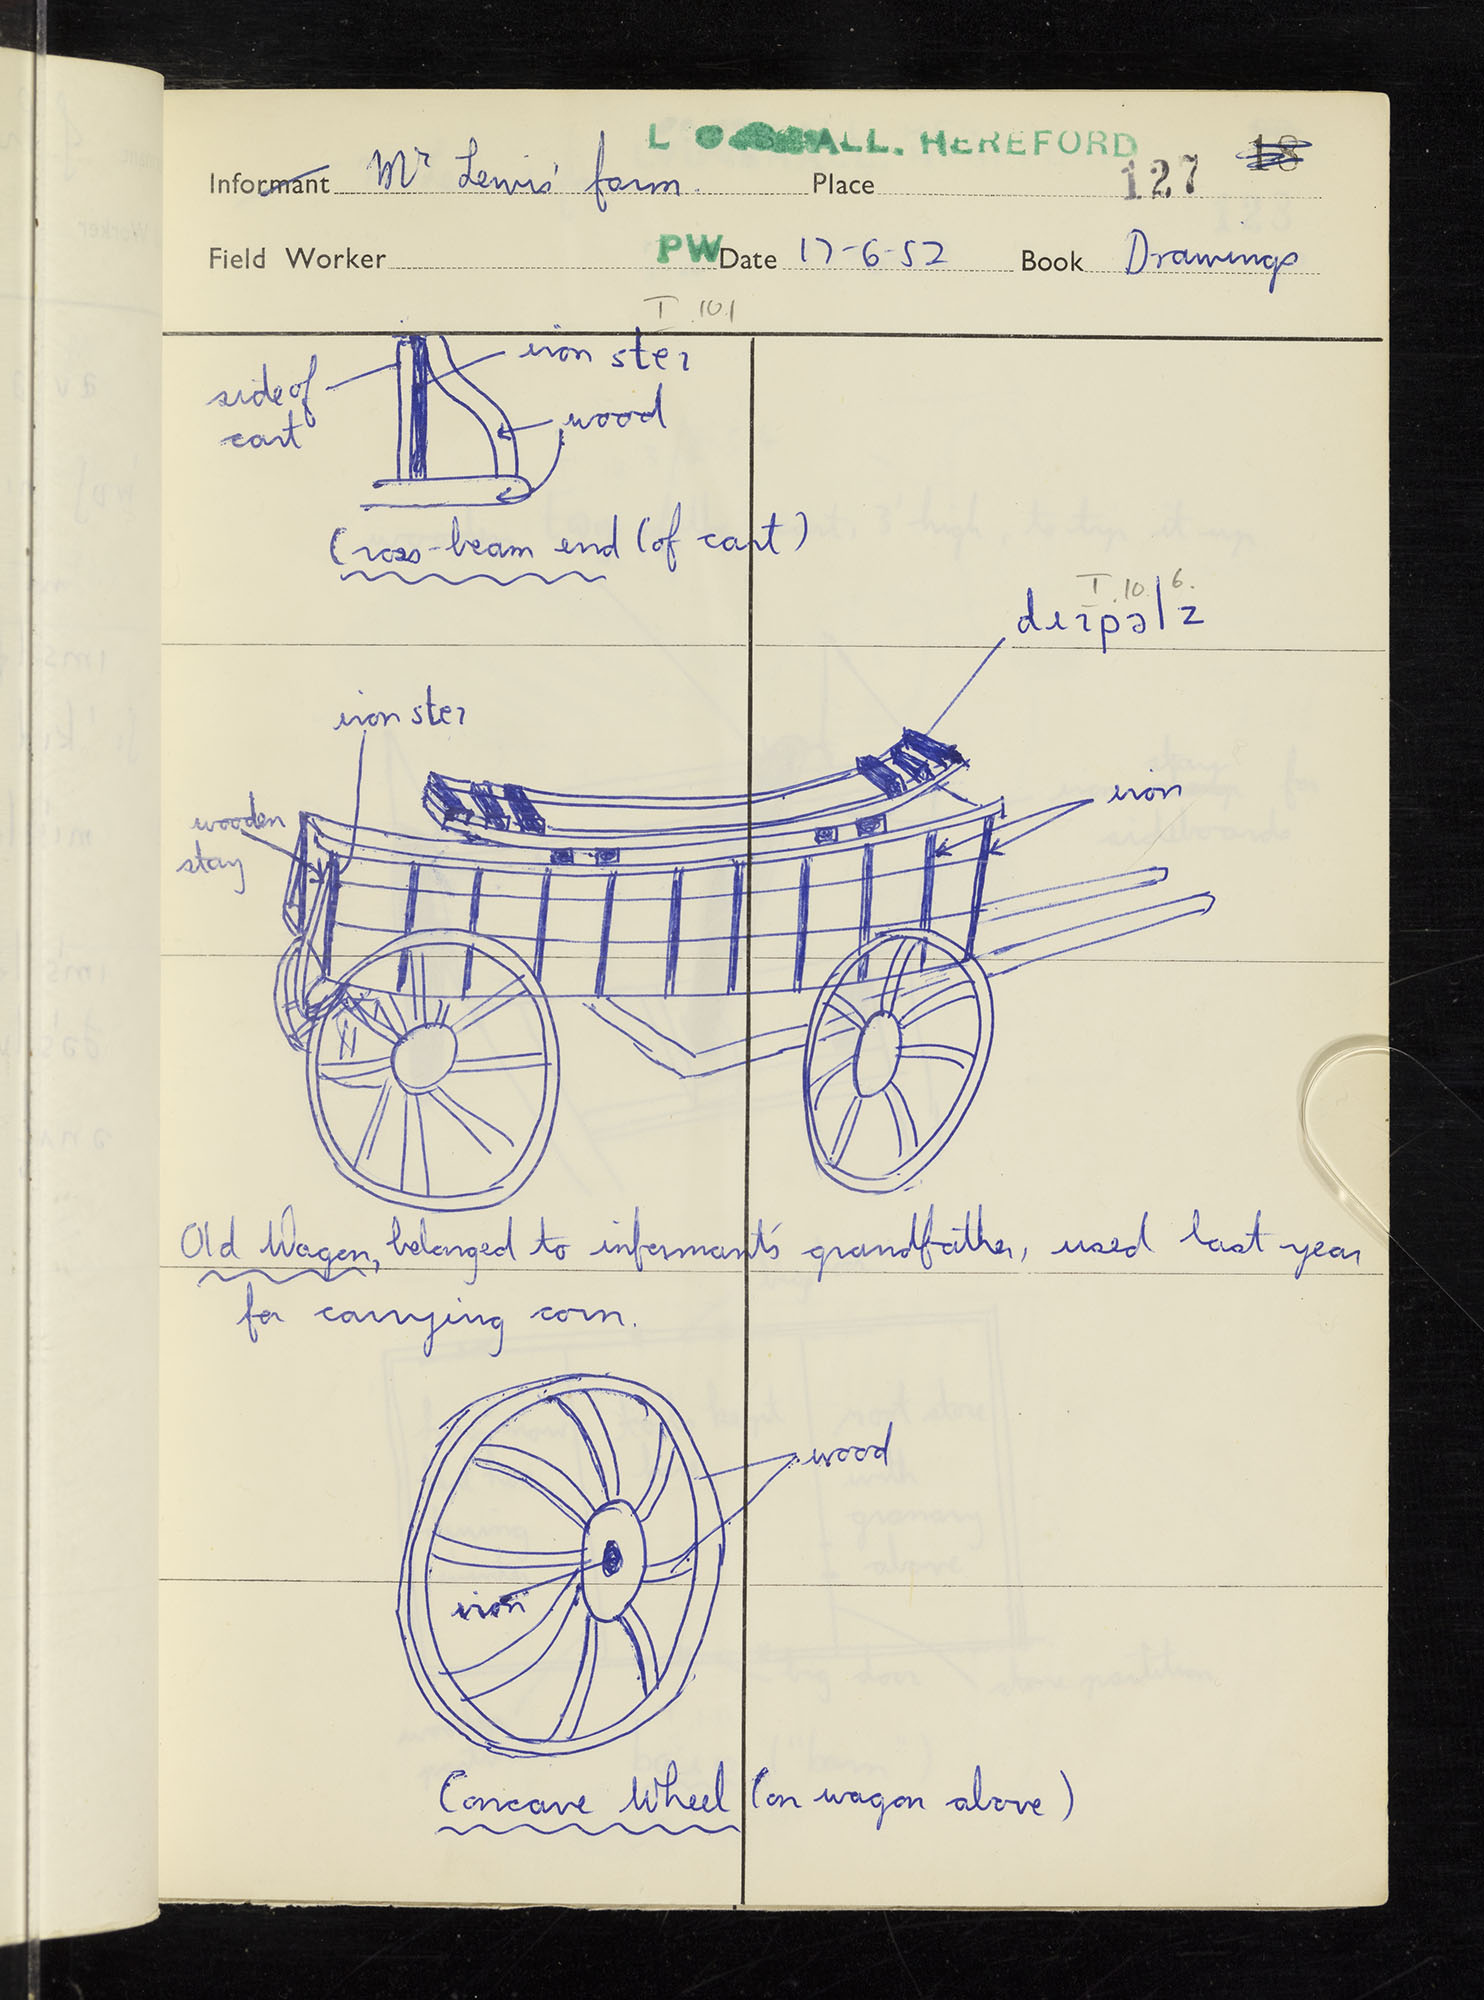 L ALL. HEREFORD
127 18
Informant Mr Lewis' farm. Place
Field Worker PW Date 17-6-52 Book Drawings
I.10.1
iron steɪ
side of
cart
wood
Cross-beam end (of cart)
I.10.6.
iron steɪ
wooden
stay
iron
Old Wagon, belonged to informant's grandfather, used last year
for carrying corn.
wood
iron
Concave Wheel (on wagon above)